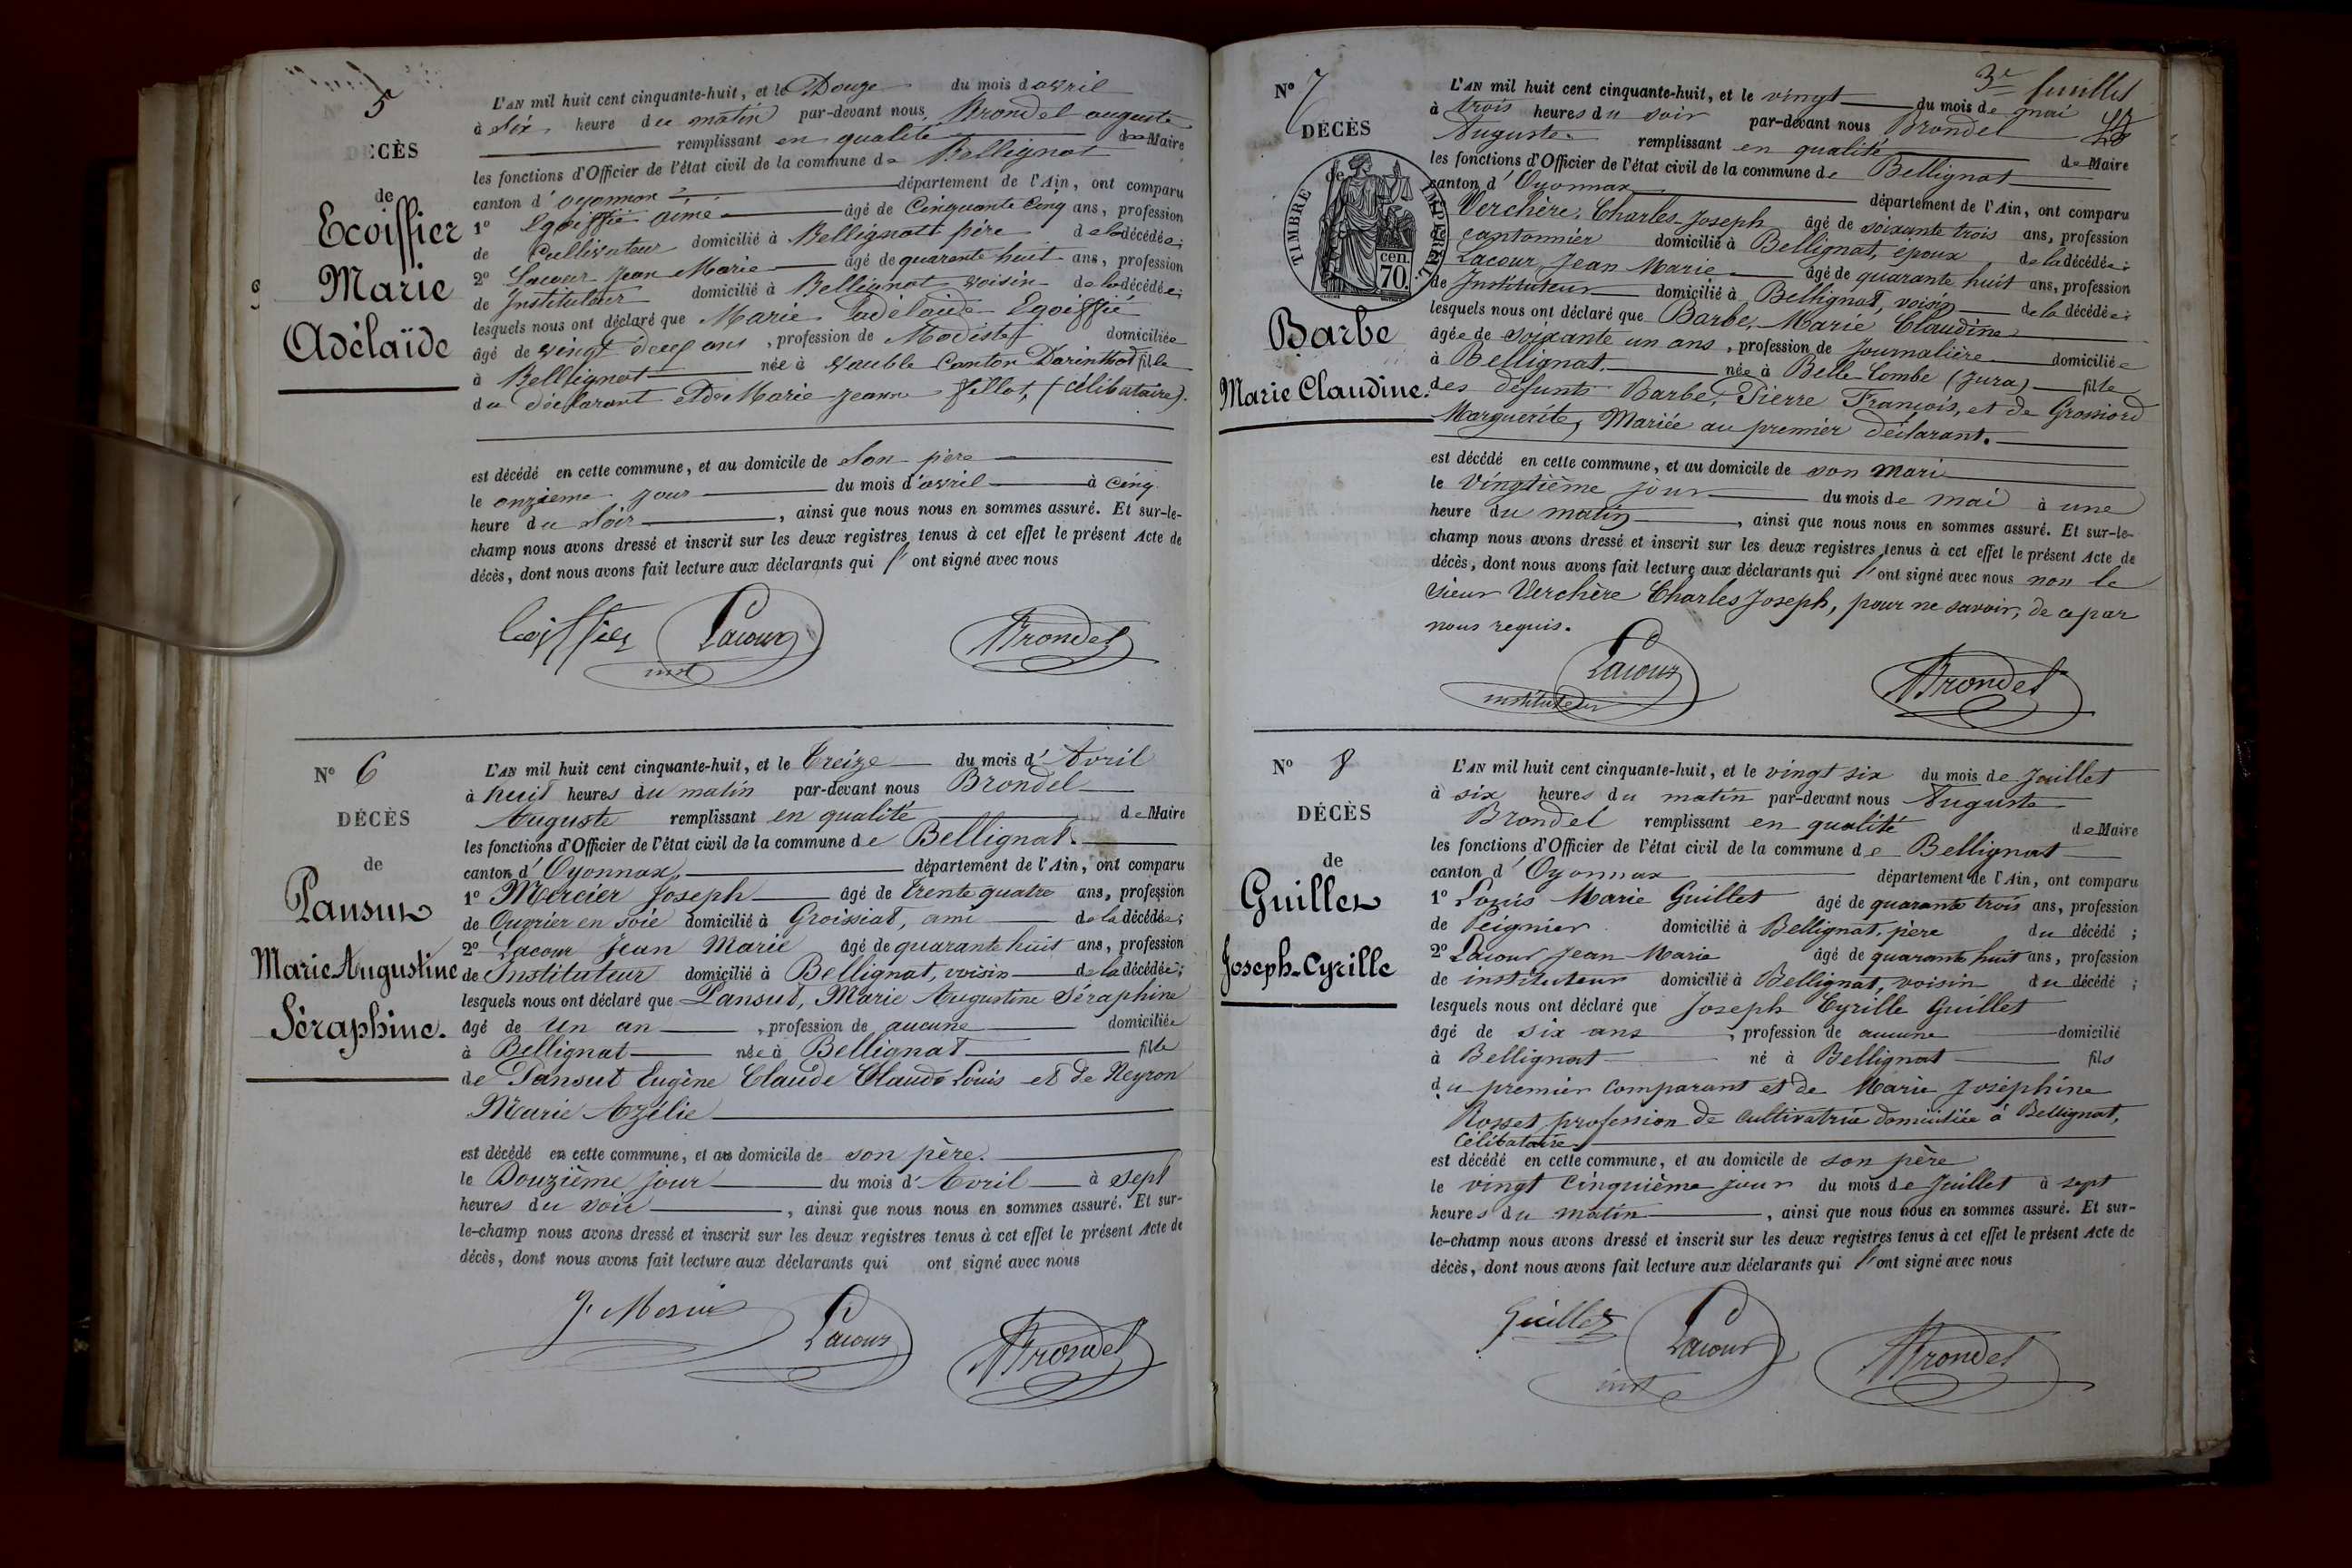 5
DÉCÈS
de
Ecoiffier
Marie
Adélaïde
L'AN mil huit cent cinquante-huit, et le Douze du mois d'avril
à Six heure du matin par-devant nous Brondel auguste
remplissant en qualité de Maire
les fonctions d'Officier de l'état civil de la commune de Bellignat
canton d'oyonnax département de l'Ain, ont comparu
1º Egoiffié aimé âgé de Cinquante Cinq ans, profession
de Cultivateur domicilié à Bellignatt père de la décédée;
2º Lacour Jean Marie âgé de quarente huit ans, profession
de Instituteur domicilié à Bellignat voisin de la décédée;
lesquels nous ont déclaré que Marie adélaide Egoiffié
âgé de vingt deux ans, profession de Modiste domiciliée
à Bellignat née à Canton fille
du déclarant et de Marie Jeanne fillot, (célibataire).
est décédé en cette commune, et au domicile de Son père
le onzieme jour du mois d'avril à cinq
heure du Soir, ainsi que nous nous en sommes assuré. Et sur-le-
champ nous avons dressé et inscrit sur les deux registres tenus à cet effet le présent Acte de
décès, dont nous avons fait lecture aux déclarants qui l'ont signé avec nous
Lacour Brondel
inst
Nº 6
DÉCÈS
de
Pansut
Marie Augustine
Séraphine.
L'AN mil huit cent cinquante-huit, et le Treize du mois d'Avril
à huit heures du matin par-devant nous Brondel
Auguste remplissant en qualité de Maire
les fonctions d'Officier de l'état civil de la commune de Bellignat.
canton d'Oyonnax, département de l'Ain, ont comparu
1º Mercier Joseph âgé de trente quatre ans, profession
de Ouvrier en soie domicilié à Groissiat, ami de la décédée;
2º Lacour Jean Marie âgé de quarante huit ans, profession
de Instituteur domicilié à Bellignat, voisin de la décédée;
lesquels nous ont déclaré que Pansut, Marie Augustine Séraphine
âgé de un an, profession de aucune domiciliée
à Bellignat née à Bellignat fille
de Pansut Eugène Claude Claude Louis et de Neyron
Marie Azélie
est décédé en cette commune, et au domicile de son père.
le Douzième jour du mois d'Avril à sept
heures du soir, ainsi que nous nous en sommes assuré. Et sur-
le-champ nous avons dressé et inscrit sur les deux registres tenus à cet effet le présent Acte de
décès, dont nous avons fait lecture aux déclarants qui ont signé avec nous
Lacour Brondel
3e feuillet
Nº 7
DÉCÈS
de
TIMBRE IMPÉRIAL
70. cen.
Barbe
Marie Claudine.
L'AN mil huit cent cinquante-huit, et le vingt du mois de mai
à trois heures du soir par-devant nous Brondel
Auguste. remplissant en qualité de Maire
les fonctions d'Officier de l'état civil de la commune de Bellignat
canton d'Oyonnax département de l'Ain, ont comparu
Verchère, Charles Joseph âgé de soixante trois ans, profession
cantonnier domicilié à Bellignat, époux de la décédée;
Lacour Jean Marie âgé de quarante huit ans, profession
de Instituteur domicilié à Bellignat, voisin de la décédée;
lesquels nous ont déclaré que Barbe, Marie Claudine
âgée de soixante un ans, profession de Journalière domiciliée
à Bellignat. née à Belle Combe (Jura) fille
des défunts Barbe, Pierre François, et de Grossiord
Marguerite, Mariée au premier déclarant.
est décédé en cette commune, et au domicile de son mari
le vingtième jour du mois de mai à une
heure du matin, ainsi que nous nous en sommes assuré. Et sur-le-
champ nous avons dressé et inscrit sur les deux registres tenus à cet effet le présent Acte de
décès, dont nous avons fait lecture aux déclarants qui l'ont signé avec nous non le
sieur Verchère Charles Joseph, pour ne savoir, de ce par
nous requis.
Lacour Brondel
instituteur
Nº 8
DÉCÈS
de
Guillet
Joseph-Cyrille
L'AN mil huit cent cinquante-huit, et le vingt six du mois de Juillet
à six heures du matin par-devant nous Auguste
Brondel remplissant en qualité de Maire
les fonctions d'Officier de l'état civil de la commune de Bellignat
canton d'Oyonnax département de l'Ain, ont comparu
1º Louis Marie Guillet âgé de quarante trois ans, profession
de Peignier domicilié à Bellignat, père du décédé;
2º Lacour Jean Marie âgé de quarante huit ans, profession
de instituteur domicilié à Bellignat, voisin du décédé;
lesquels nous ont déclaré que Joseph Cyrille Guillet
âgé de six ans, profession de aucune domicilié
à Bellignat né à Bellignat fils
du premier comparant et de Marie Joséphine
Rosset profession de cultivatrice domiciliée à Bellignat,
Célibataire.
est décédé en cette commune, et au domicile de son père
le vingt cinquième jour du mois de Juillet à sept
heures du matin, ainsi que nous nous en sommes assuré. Et sur-
le-champ nous avons dressé et inscrit sur les deux registres tenus à cet effet le présent Acte de
décès, dont nous avons fait lecture aux déclarants qui l'ont signé avec nous
Guillet Lacour Brondel
inst